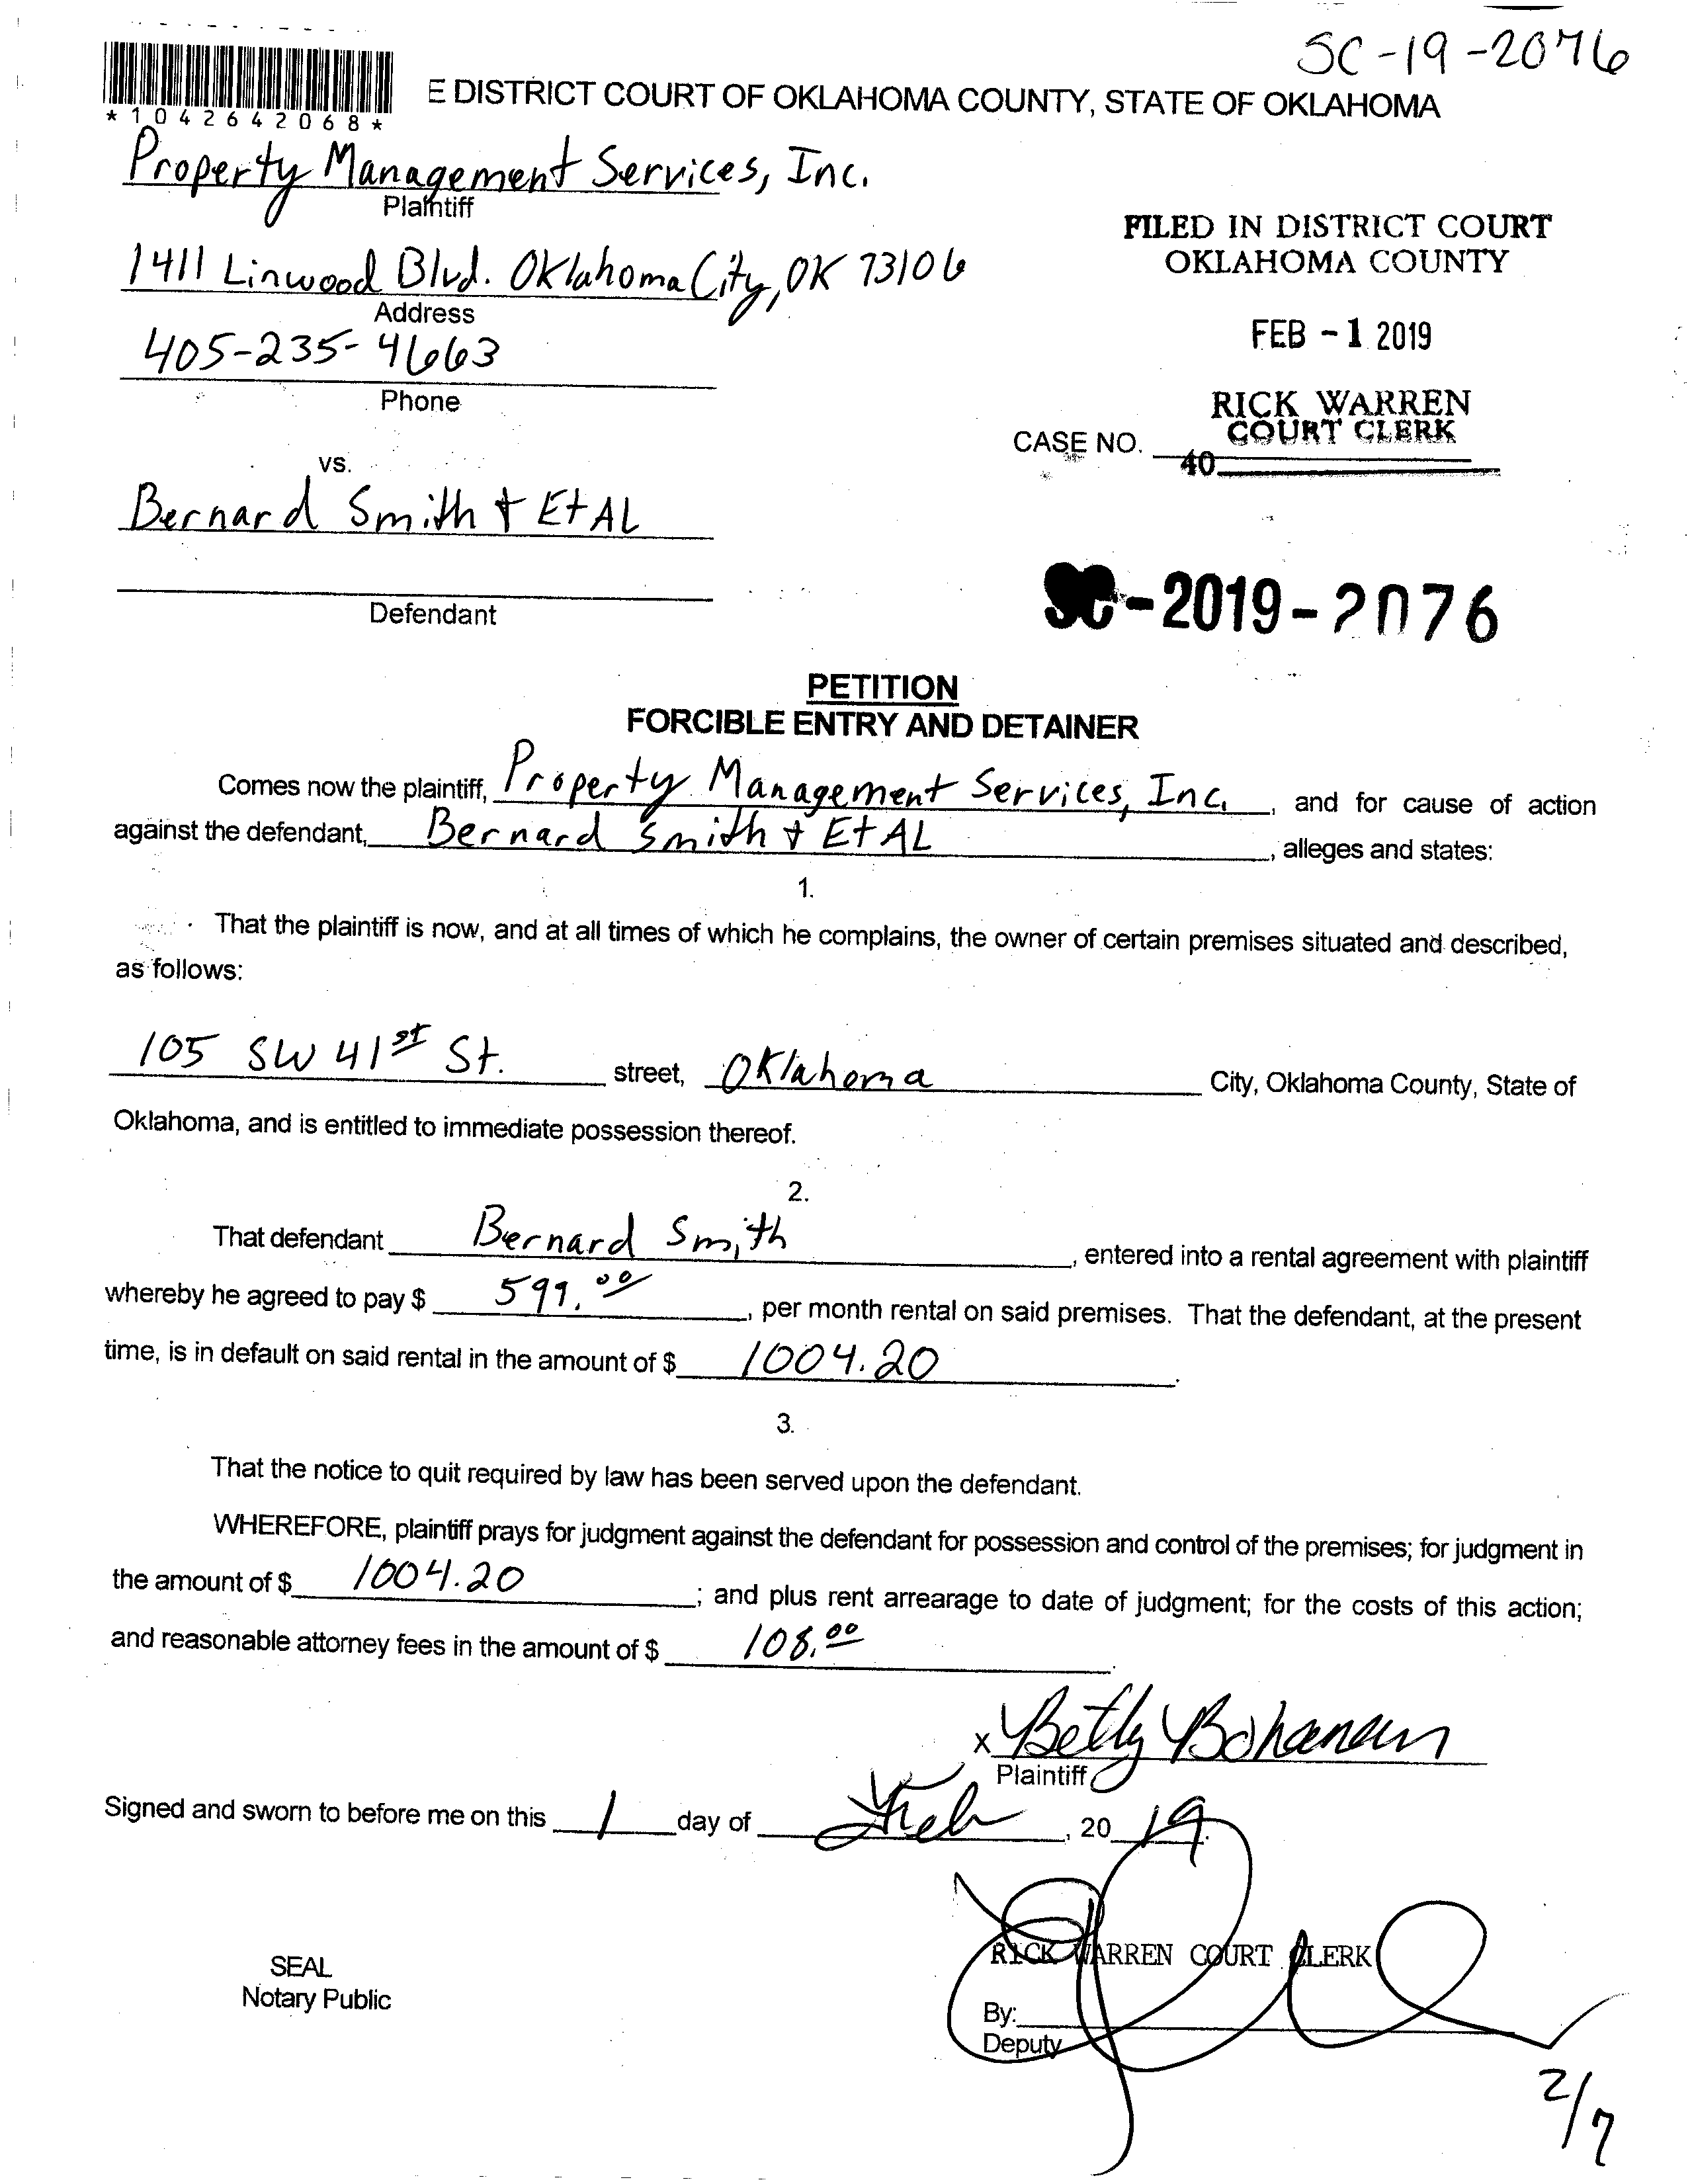 SC-19-2076
E DISTRICT COURT OF OKLAHOMA COUNTY, STATE OF OKLAHOMA
*1042642068*
Property Management Services, Inc.
Plaintiff
1411 Linwood Blvd. Oklahoma City, OK 73106
Address
405-235-4663
Phone
FILED IN DISTRICT COURT
OKLAHOMA COUNTY
FEB -1 2019
RICK WARREN
COURT CLERK
CASE NO.
40
vs.
Bernard Smith + Et AL
Defendant
SC-2019-2076
PETITION
FORCIBLE ENTRY AND DETAINER
Comes now the plaintiff, Property Management Services, Inc., and for cause of action
against the defendant, Bernard Smith + Et AL, alleges and states:
1.
That the plaintiff is now, and at all times of which he complains, the owner of certain premises situated and described,
as follows:
105 SW 41st St. street, Oklahoma City, Oklahoma County, State of
Oklahoma, and is entitled to immediate possession thereof.
2.
That defendant Bernard Smith, entered into a rental agreement with plaintiff
whereby he agreed to pay $ 599.00, per month rental on said premises. That the defendant, at the present
time, is in default on said rental in the amount of $ 1004.20.
3.
That the notice to quit required by law has been served upon the defendant.
WHEREFORE, plaintiff prays for judgment against the defendant for possession and control of the premises; for judgment in
the amount of $ 1004.20; and plus rent arrearage to date of judgment; for the costs of this action;
and reasonable attorney fees in the amount of $ 108.00.
x Betty Bohanan
Plaintiff
Signed and sworn to before me on this 1 day of Feb, 20 19.
RICK WARREN COURT CLERK
SEAL
Notary Public
By:
Deputy
2/7